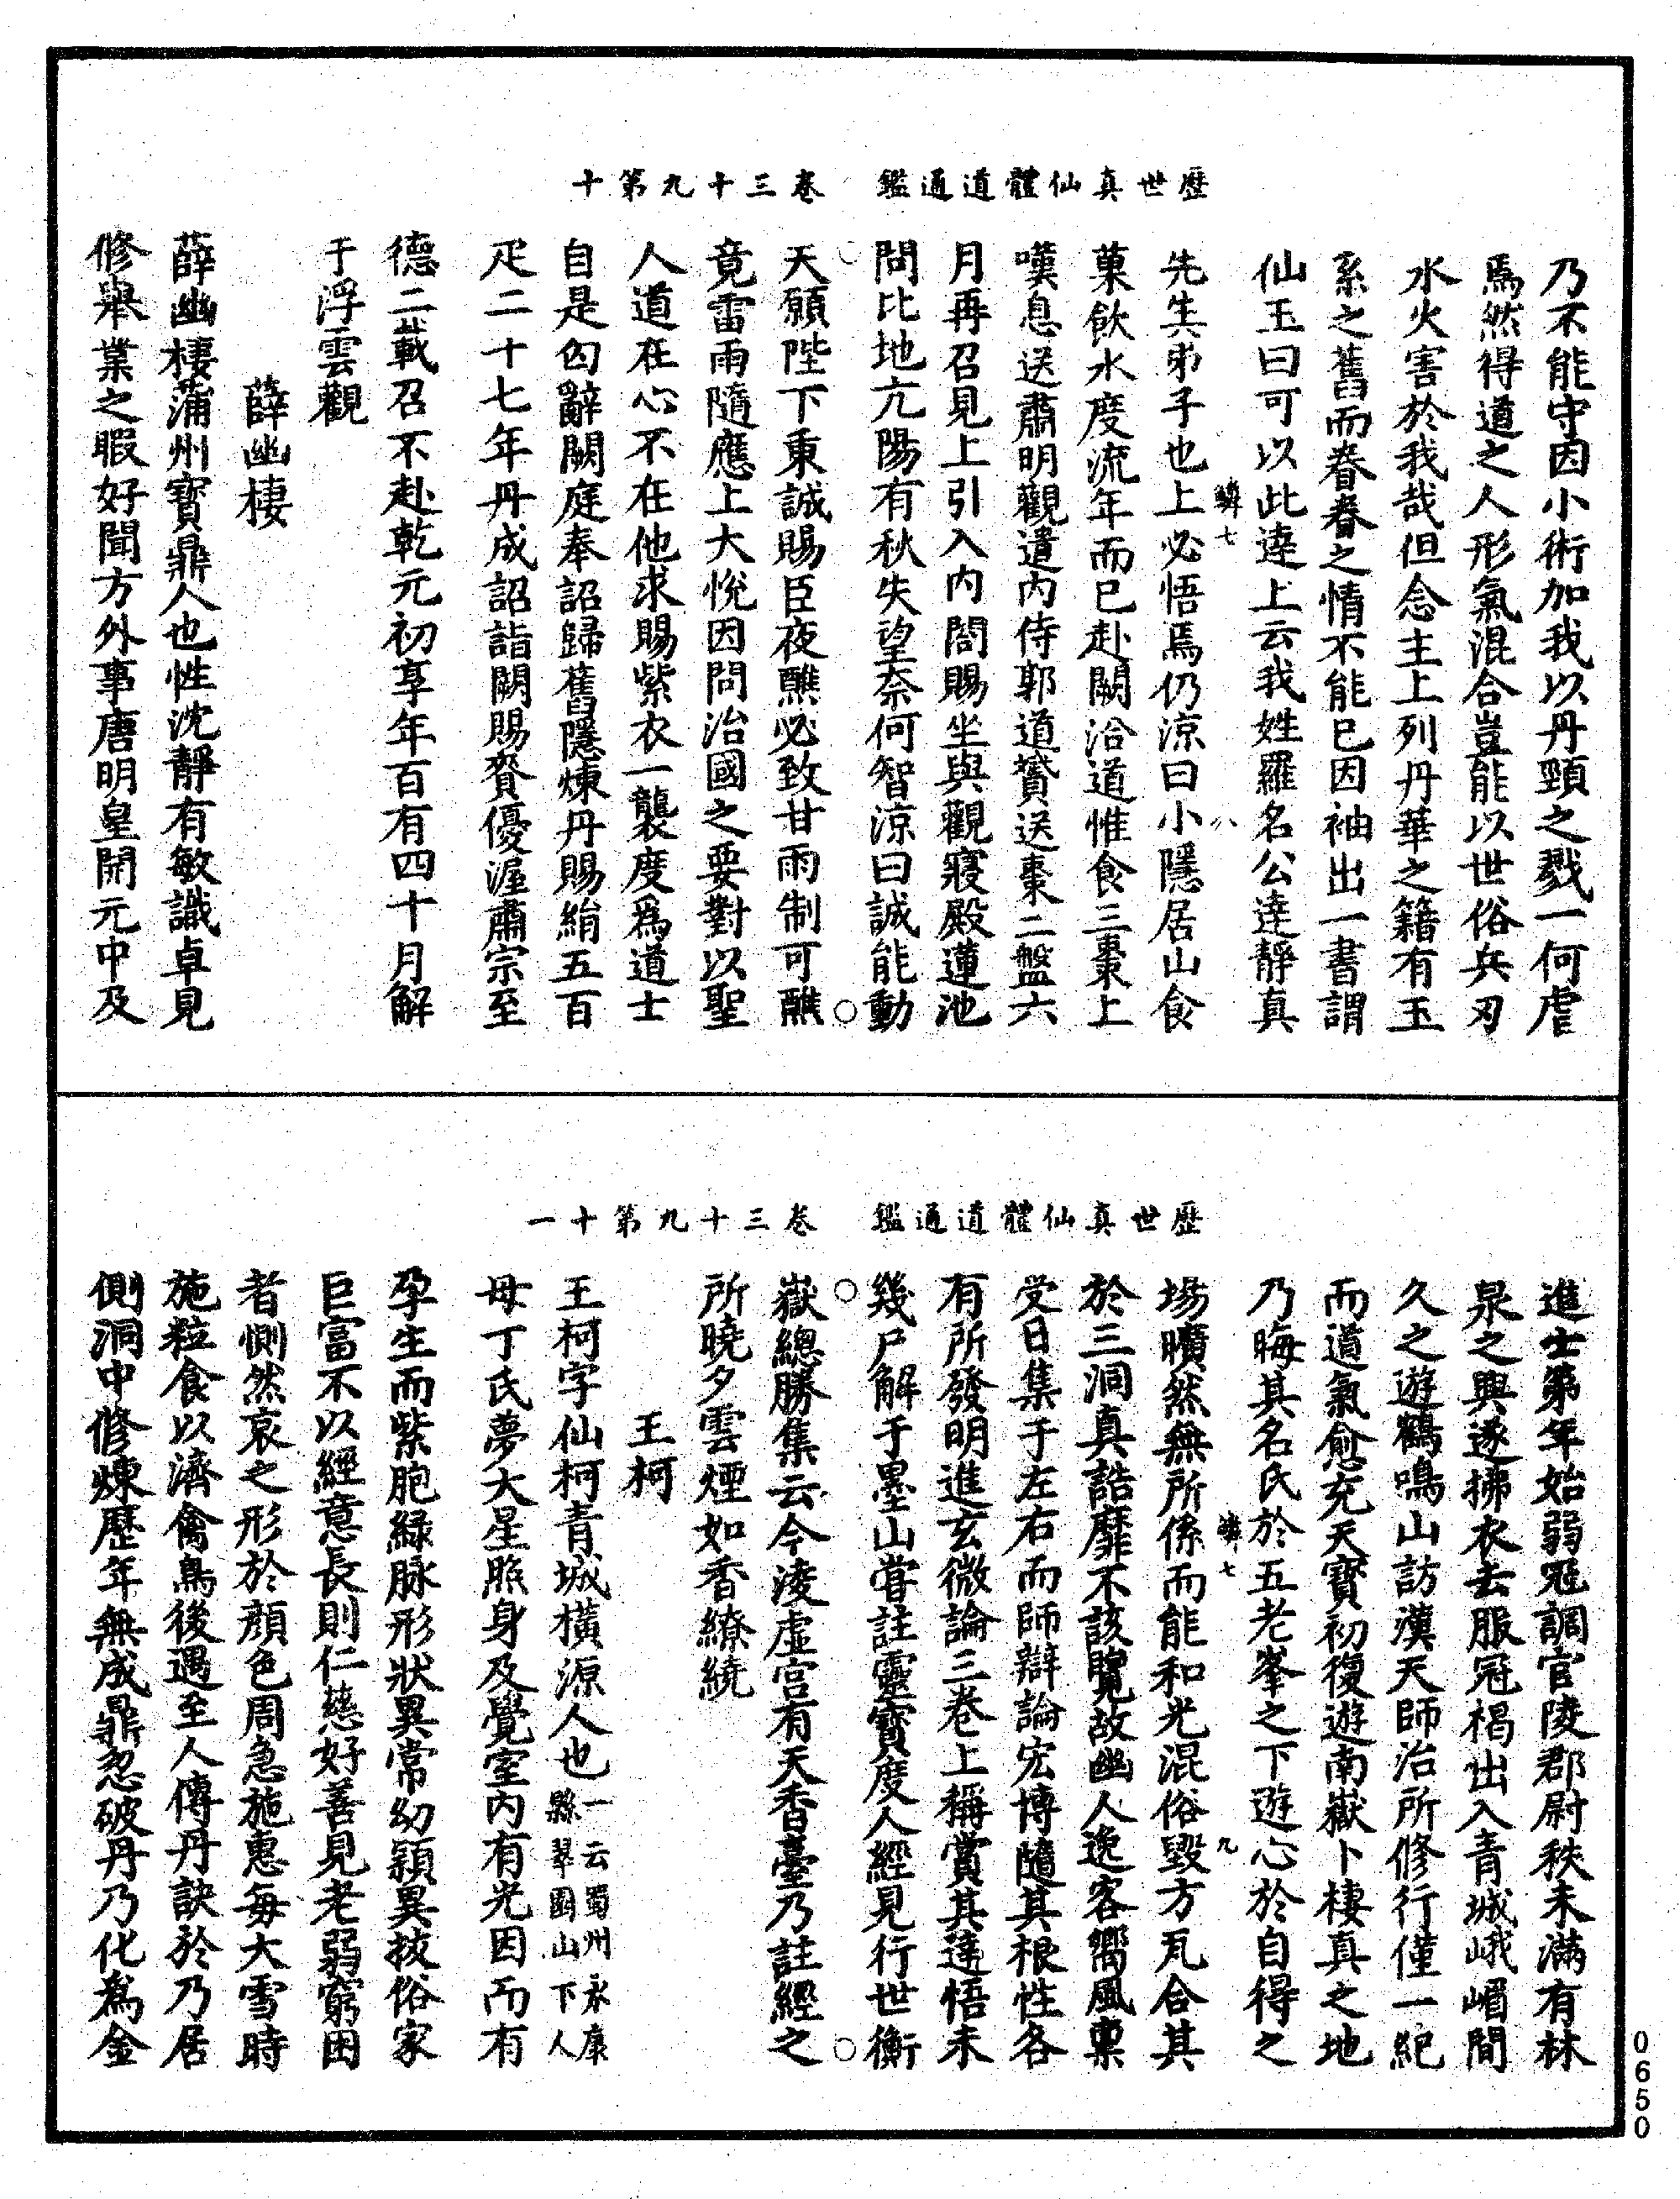 歷世真仙體道通鑑　卷三十九第十
乃不能守因小術加我以丹頸之戮一何虐
焉然得道之人形氣混合豈能以世俗兵刃
水火害於我哉但念主上列丹華之籍有玉
系之舊而眷眷之情不能已因袖出一書謂
仙玉曰可以此達上云我姓羅名公遠靜真
鱗七　八
先生弟子也上必悟焉仍涼曰小隱居山食
菓飲水度流年而已赴闕洽道惟食三棗上
嘆息送肅明觀遣内侍郭道贇送棗二盤六
月再召見上引入内閤賜坐與觀寢殿蓮池
問比地亢陽有秋失望奈何智涼曰誠能動
天願陛下東誠賜臣夜醮必致甘雨制可醮
竟雷雨隨應上大悅因問治國之要對以聖
人道在心不在他求賜紫衣一襲度爲道士
自是匃辭闕庭奉詔歸舊隱煉丹賜絹五百
疋二十七年丹成詔詣闕賜賚優渥肅宗至
德二載召不赴乾元初享年百有四十月解
于浮雲觀
薛幽棲
薛幽棲蒲州寶鼎人也性沈靜有敏識卓見
修舉業之暇好聞方外事唐明皇開元中及
歷世真仙體道通鑑　卷三十九第十一
進士第年始弱冠調官陵郡尉秩未滿有林
泉之興遂拂衣去服冠褐出入青城峨嵋間
久之遊鶴鳴山訪漢天師治所修行僅一紀
而道氣愈充天寶初復遊南嶽卜棲真之地
乃晦其名氏於五老峯之下遊心於自得之
鱗七　九
場曠然無所係而能和光混俗毀方瓦合其
於三洞真誥靡不該覽故幽人逸客嚮風稟
受日集于左右而師辯論宏博隨其根性各
有所發明進玄微論三卷上稱賞其達悟未
幾尸解于墨山嘗註靈寶度人經見行世衡
嶽總勝集云今淩虛宫有天香臺乃註經之
所曉夕雲煙如香繚繞
王柯
王柯字仙柯青城橫源人也一云蜀州永康縣翠圍山下人
母丁氏夢大星照身及覺室内有光因而有
孕生而紫胞綠脉形狀異常幼穎異拔俗家
巨富不以經意長則仁慈好善見老弱窮困
者惻然哀之形於顔色周急施惠每大雪時
施粒食以濟禽鳥後遇至人傳丹訣於乃居
側洞中修煉歷年無成鼎忽破丹乃化爲金
0650